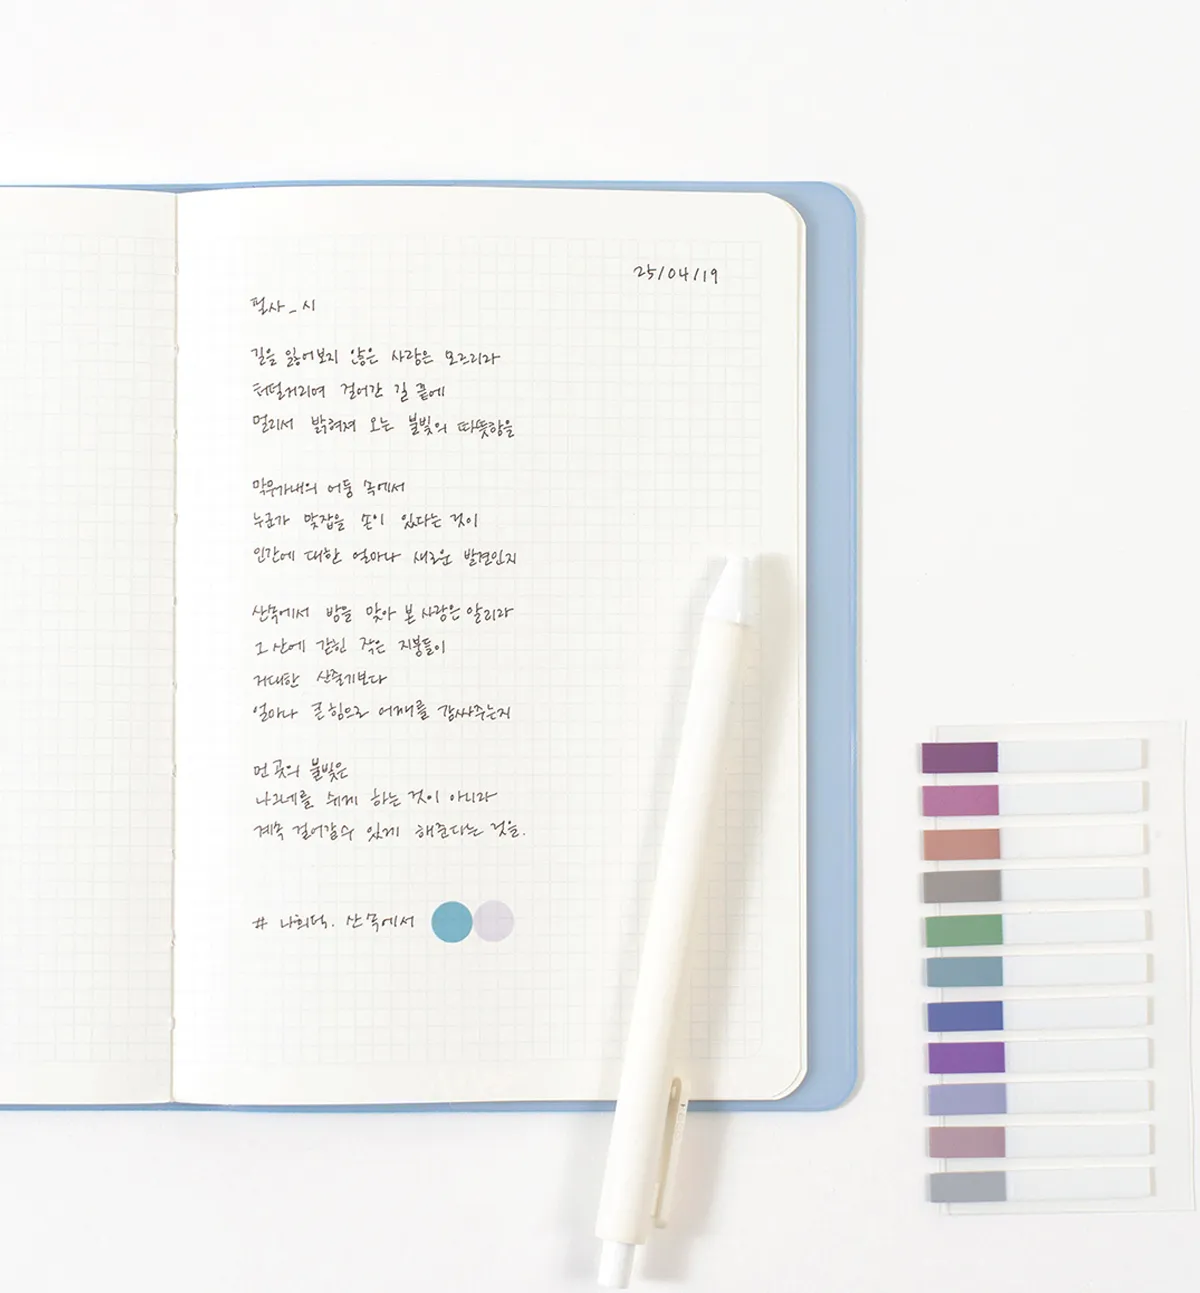 25/04/19
필사_시
길을 잃어보지 않은 사람은 모르리라
터덜거리며 걸어간 길 끝에
멀리서 밝혀져 오는 불빛의 따뜻함을
막무가내의 어둠 속에서
누군가 맞잡을 손이 있다는 것이
인간에 대한 얼마나 새로운 발견인지
산속에서 밤을 맞아 본 사람은 알리라
그 산에 갇힌 작은 지붕들이
거대한 산줄기보다
얼마나 큰 힘으로 어깨를 감싸주는지
먼 곳의 불빛은
나그네를 쉬게 하는 것이 아니라
계속 걸어갈수 있게 해준다는 것을.
# 나희덕. 산 속에서